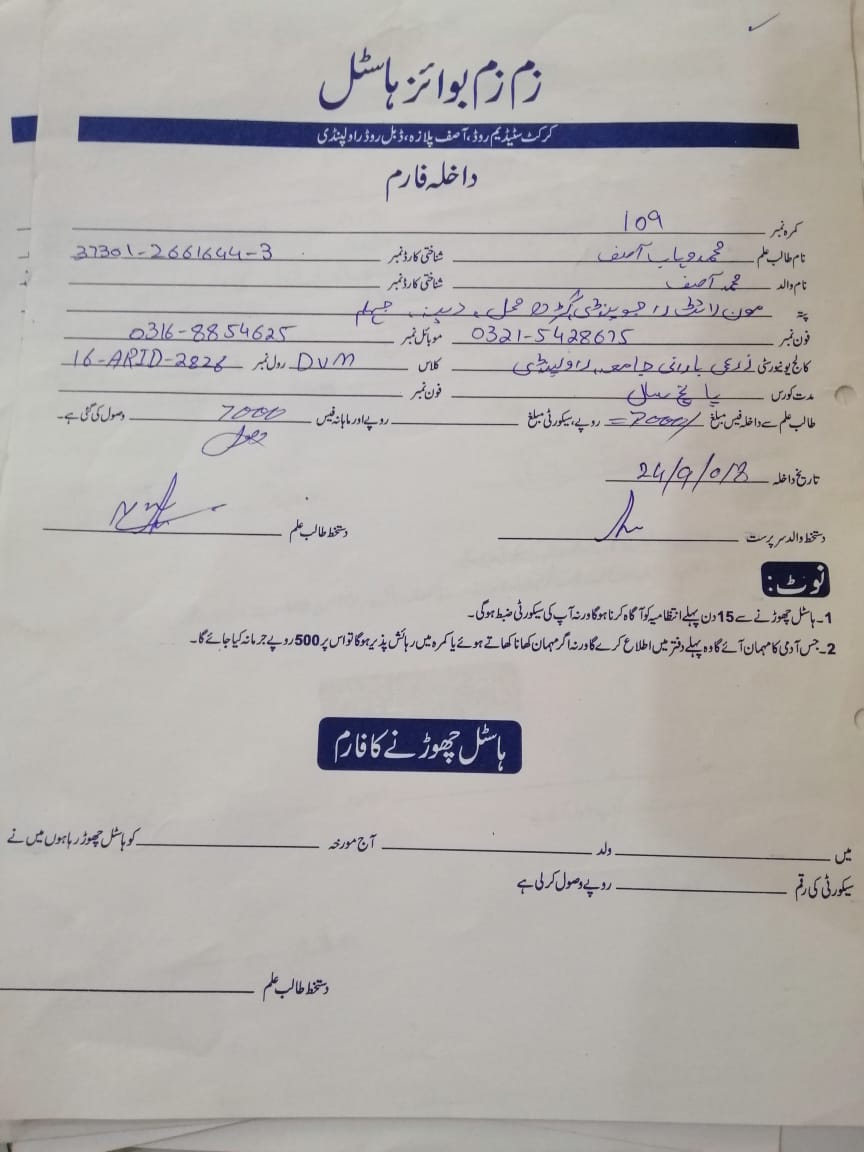 زم زم بوائز ہاسٹل
کرکٹ سٹیڈیم روڈ، آصف پلازہ، ڈبل روڈ راولپنڈی
داخلہ فارم
کمرہ نمبر 109
نام طالب علم محمد وہاب آصف شناختی کارڈ نمبر 37301-2661644-3
نام والد محمد آصف شناختی کارڈ نمبر
پتہ محل، دینہ، جہلم
فون نمبر 0321-5428675 موبائل نمبر 0316-8854625
کالج یونیورسٹی زرعی بارانی جامعہ، راولپنڈی کلاس DVM رول نمبر 16-ARID-2826
مدت کورس پانچ سال فون نمبر
طالب علم سے داخلہ فیس مبلغ 7000/= روپے، سیکورٹی مبلغ روپے اور ماہانہ فیس 7000 وصول کی گئی ہے۔
تاریخ داخلہ 24/9/018
دستخط والد سرپرست دستخط طالب علم
نوٹ:
1۔ ہاسٹل چھوڑنے سے 15 دن پہلے انتظامیہ کو آگاہ کرنا ہوگا ورنہ آپ کی سیکورٹی ضبط ہوگی۔
2۔ جس آدمی کا مہمان آئے گا وہ پہلے دفتر میں اطلاع کرے گا ورنہ اگر مہمان کھانا کھاتے ہوئے یا کمرہ میں رہائش پذیر ہوگا تو اس پر 500 روپے جرمانہ کیا جائے گا۔
ہاسٹل چھوڑنے کا فارم
میں ولد آج مورخہ کو ہاسٹل چھوڑ رہا ہوں میں نے
سیکورٹی کی رقم روپے وصول کر لی ہے
دستخط طالب علم